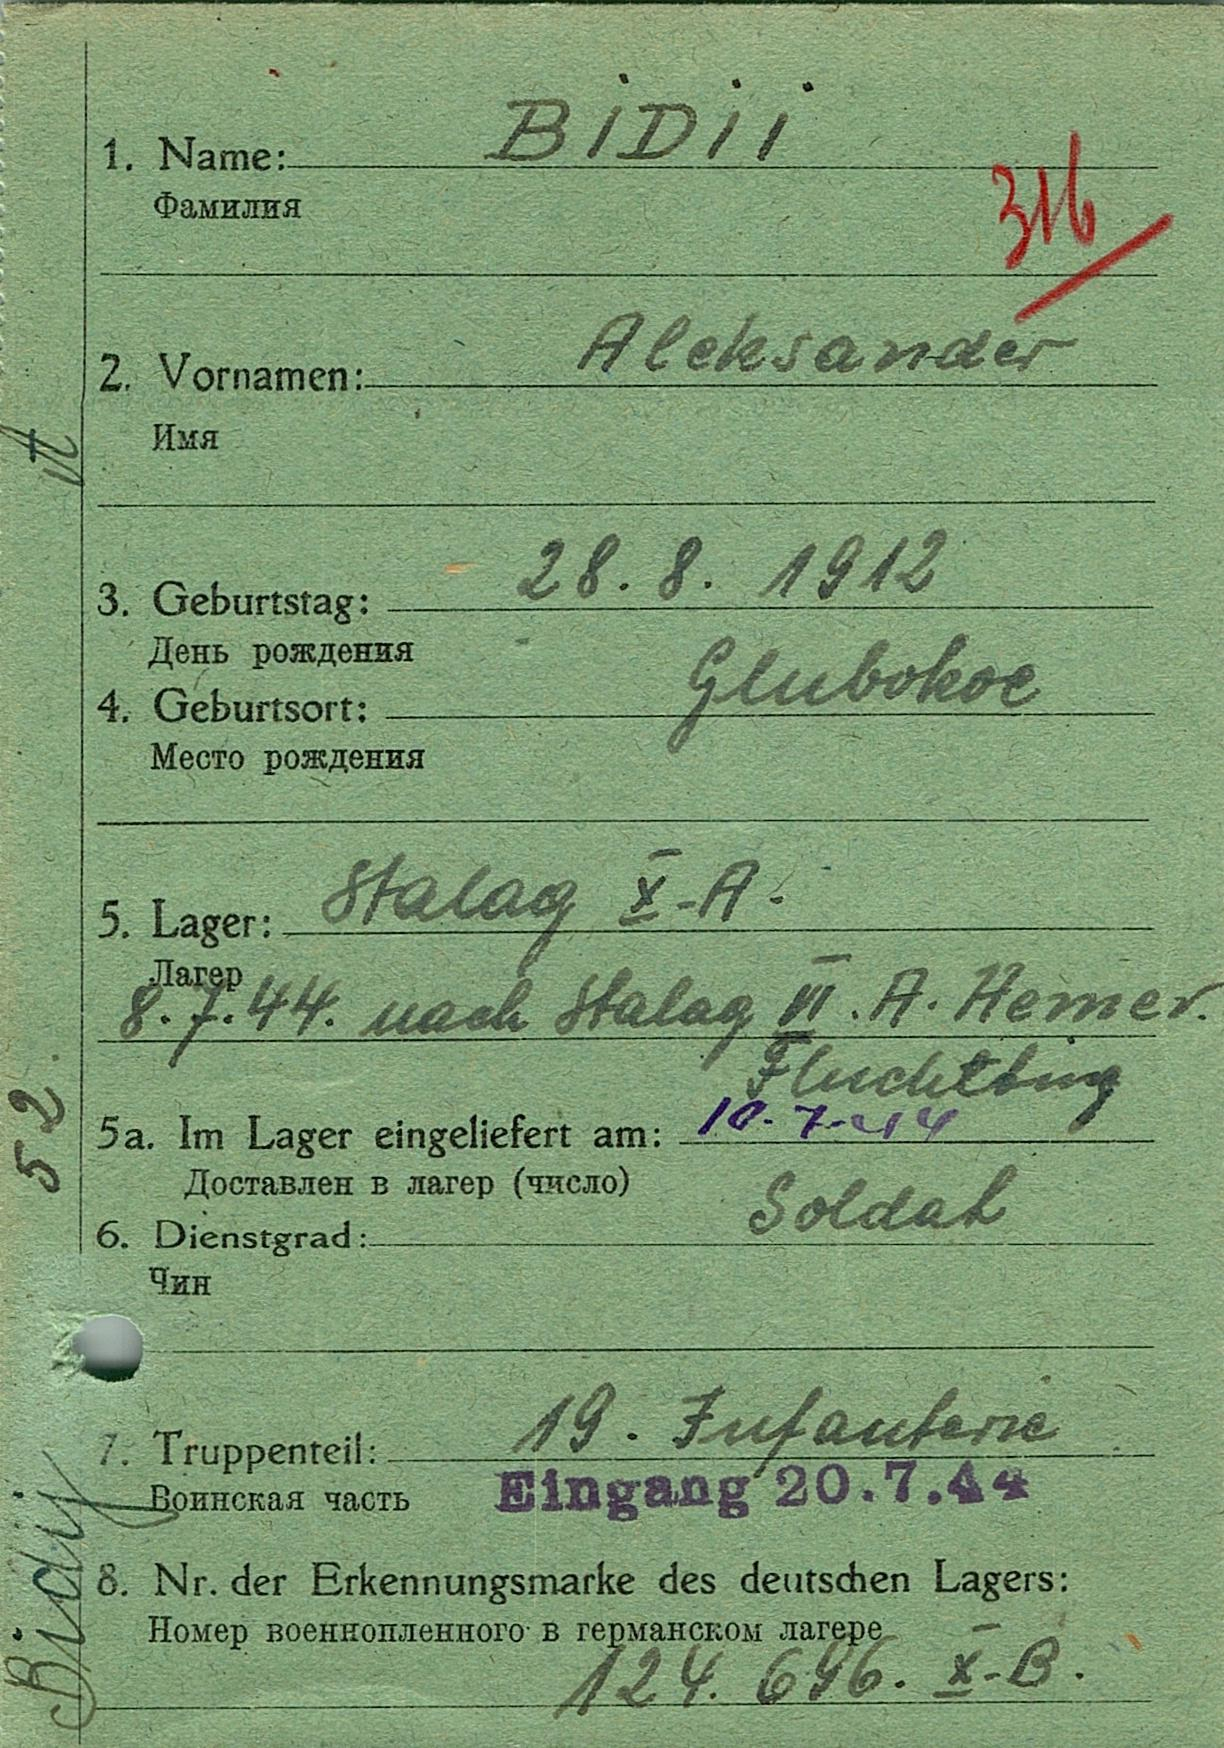 1. Name: BiDii
Фамилия
316
2. Vornamen: Aleksander
Имя
3. Geburtstag: 28. 8. 1912
День рождения
4. Geburtsort: Glubokoe
Место рождения
5. Lager: Stalag X-A.
Лагер
8.7.44. nach Stalag VI. A. Hemer.
52.
5a. Im Lager eingeliefert am: 10.7.44
Доставлен в лагер (число)
6. Dienstgrad: Soldat
Чин
7. Truppenteil: 19. Infanterie
Воинская часть
Eingang 20.7.44
8. Nr. der Erkennungsmarke des deutschen Lagers:
Номер военнопленного в германском лагере
124. 696. X-B.
Bidij